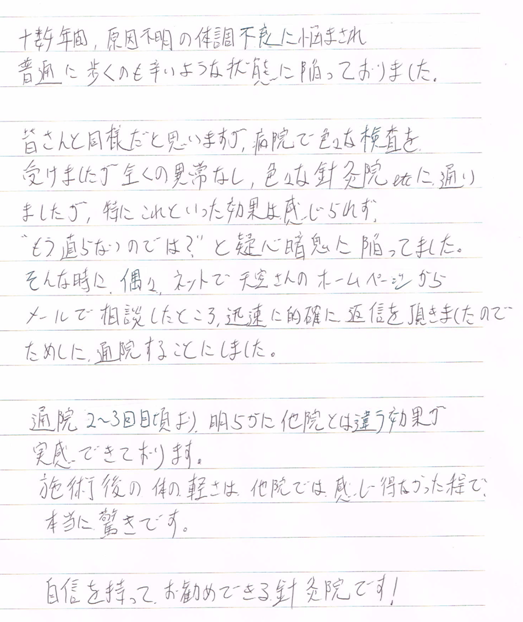 十数年間、原因不明の体調不良に悩まされ
普通に歩くのも辛いような状態に陥っておりました。
皆さんと同様だと思いますが、病院で色々な検査を
受けましたが全くの異常なし、色々な針灸院etcに通い
ましたが、特にこれといった効果は感じられず、
"もう直らないのでは?"と疑心暗鬼に陥ってました。
そんな時に、偶々、ネットで天空さんのホームページから
メールで相談したところ、迅速に的確に返信を頂きましたので
ためしに、通院することにしました。
通院2〜3回目頃より、明らかに他院とは違う効果が
実感できております。
施術後の体の軽さは、他院では感じ得なかった程で、
本当に驚きです。
自信を持って、お勧めできる針灸院です!